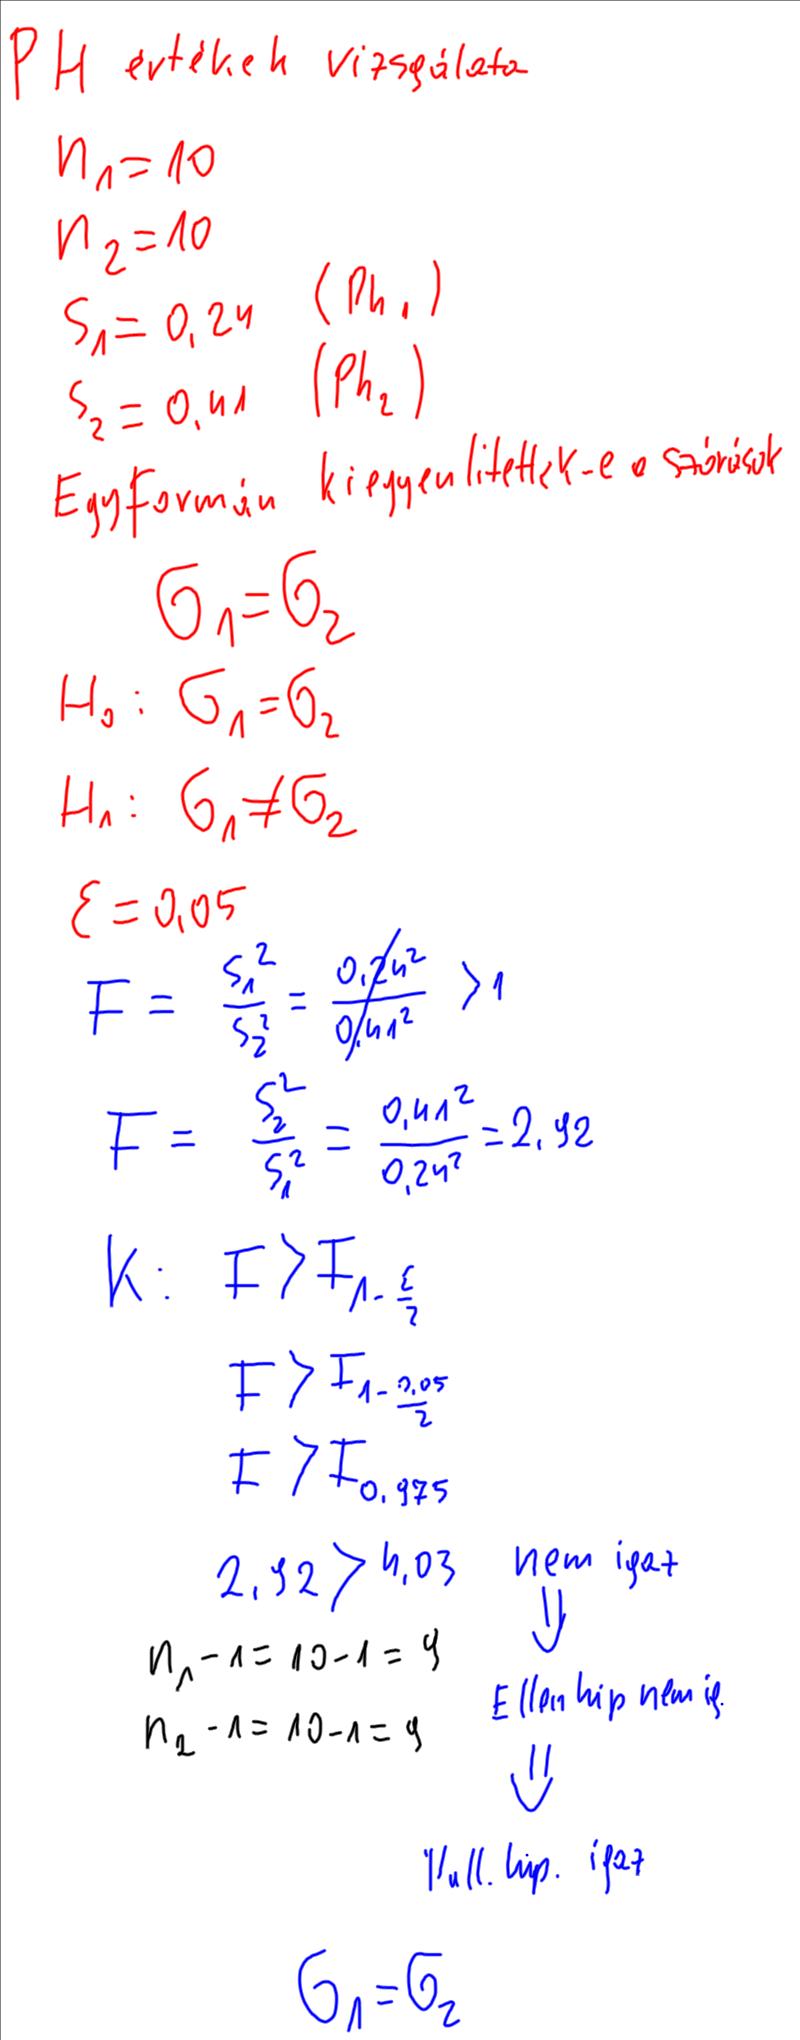 PH értékek vizsgálata
n₁=10
n₂=10
S₁=0,24 (Ph₁)
S₂=0,41 (Ph₂)
Egyformán kiegyenlitettek-e a szórások
σ₁=σ₂
H₀: σ₁=σ₂
H₁: σ₁≠σ₂
ε=0,05
F = S₁²/S₂² = 0,24²/0,41² >1
F = S₂²/S₁² = 0,41²/0,24² =2,92
K: F>F₁₋ε/₂
F>F₁₋₀,₀₅/₂
F>F₀,₉₇₅
2,92>4,03 nem igaz
⇓
n₁-1=10-1=9
Ellenhip nem ig.
n₂-1=10-1=9
⇓
Null. hip. igaz
σ₁=σ₂